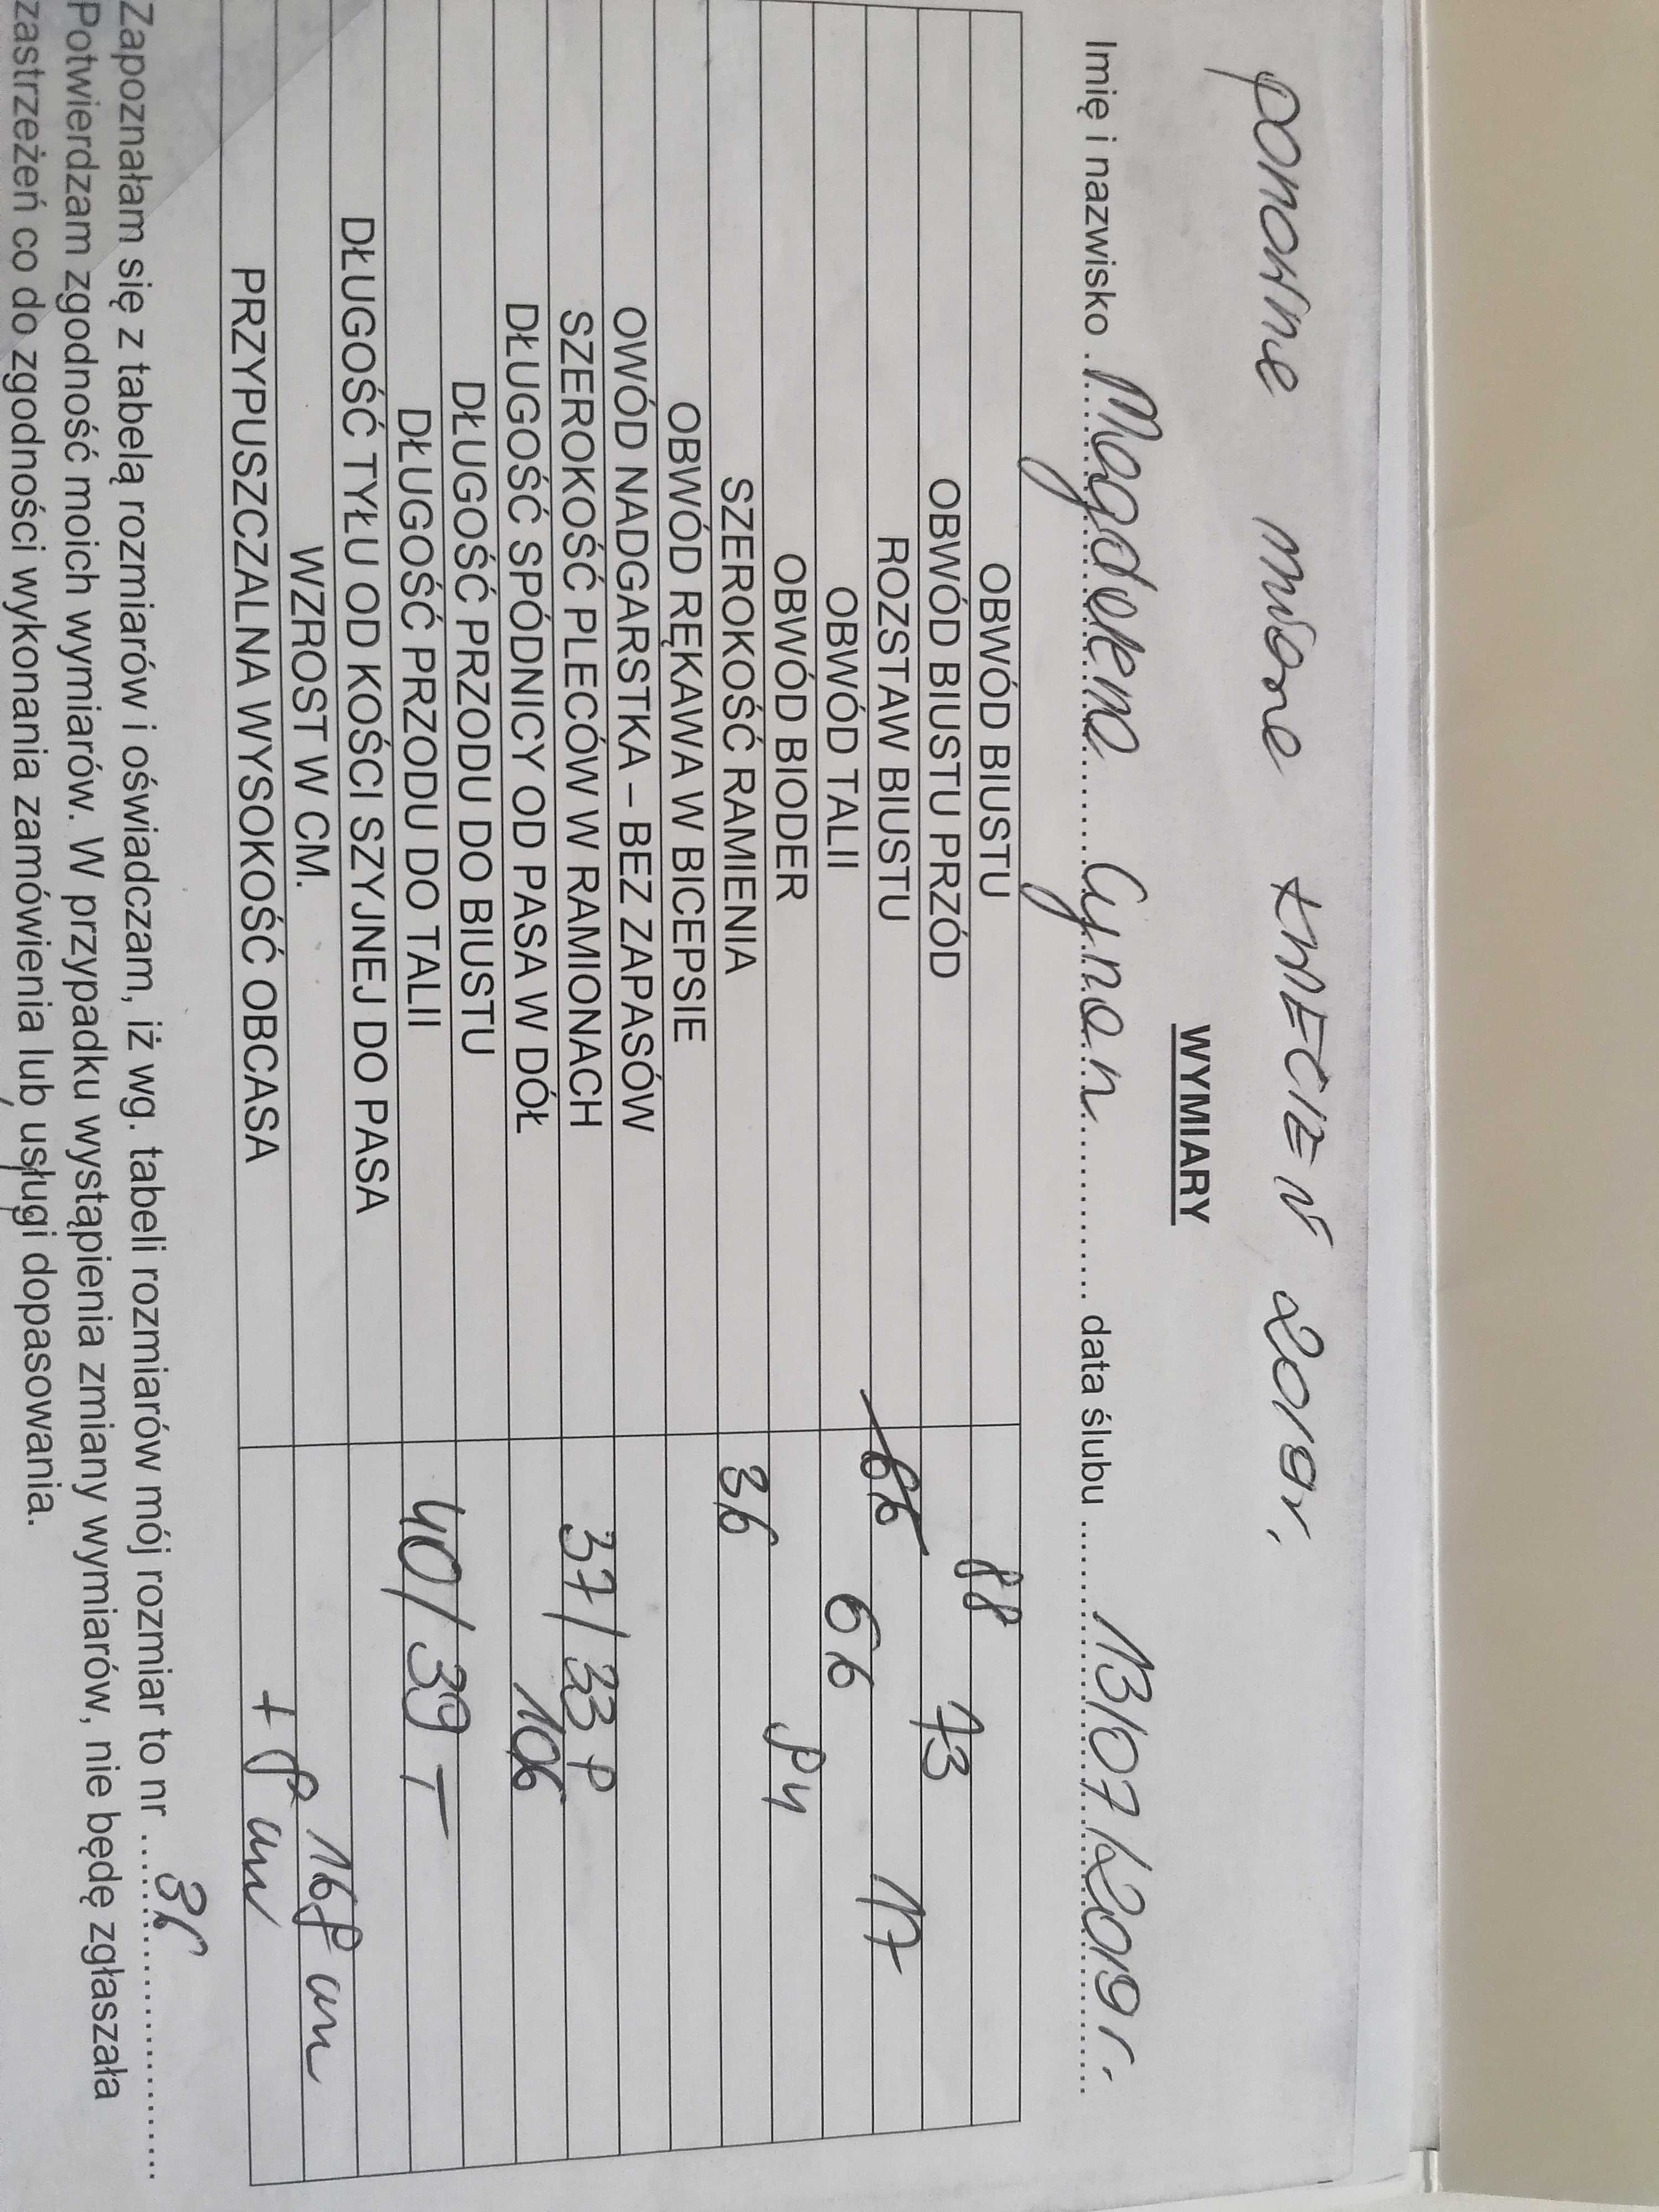 ponowne miara KWIECIEŃ 2019r.
WYMIARY
Imię i nazwisko Magdalena Cynan data ślubu 13/07/2019r.
OBWÓD BIUSTU 88
OBWÓD BIUSTU PRZÓD 73
ROZSTAW BIUSTU 66 17
OBWÓD TALII 66
OBWÓD BIODER 94
SZEROKOŚĆ RAMIENIA 36
OBWÓD RĘKAWA W BICEPSIE
OWÓD NADGARSTKA – BEZ ZAPASÓW
SZEROKOŚĆ PLECÓW W RAMIONACH 37/33 P
DŁUGOŚĆ SPÓDNICY OD PASA W DÓŁ 106
DŁUGOŚĆ PRZODU DO BIUSTU
DŁUGOŚĆ PRZODU DO TALII 40/39 T
DŁUGOŚĆ TYŁU OD KOŚCI SZYJNEJ DO PASA
WZROST W CM. 168 cm
PRZYPUSZCZALNA WYSOKOŚĆ OBCASA + 8 cm
Zapoznałam się z tabelą rozmiarów i oświadczam, iż wg. tabeli rozmiarów mój rozmiar to nr 36
Potwierdzam zgodność moich wymiarów. W przypadku wystąpienia zmiany wymiarów, nie będę zgłaszała
zastrzeżeń co do zgodności wykonania zamówienia lub usługi dopasowania.